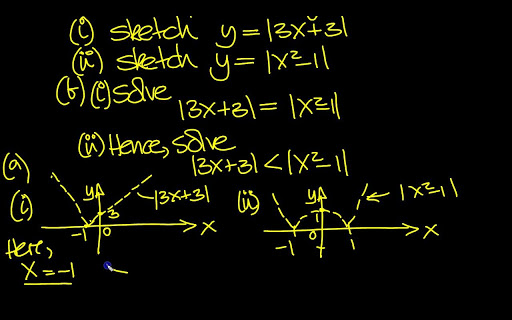 (i) sketch y = |3x+3|
(ii) sketch y = |x²-1|
(b) (i) solve
|3x+3| = |x²-1|
(ii) Hence, solve
|3x+3| < |x²-1|
(a)
(i) y |3x+3| 3 -1 0 x
(ii) y |x²-1| 1 -1 0 1 x
Here,
x = -1